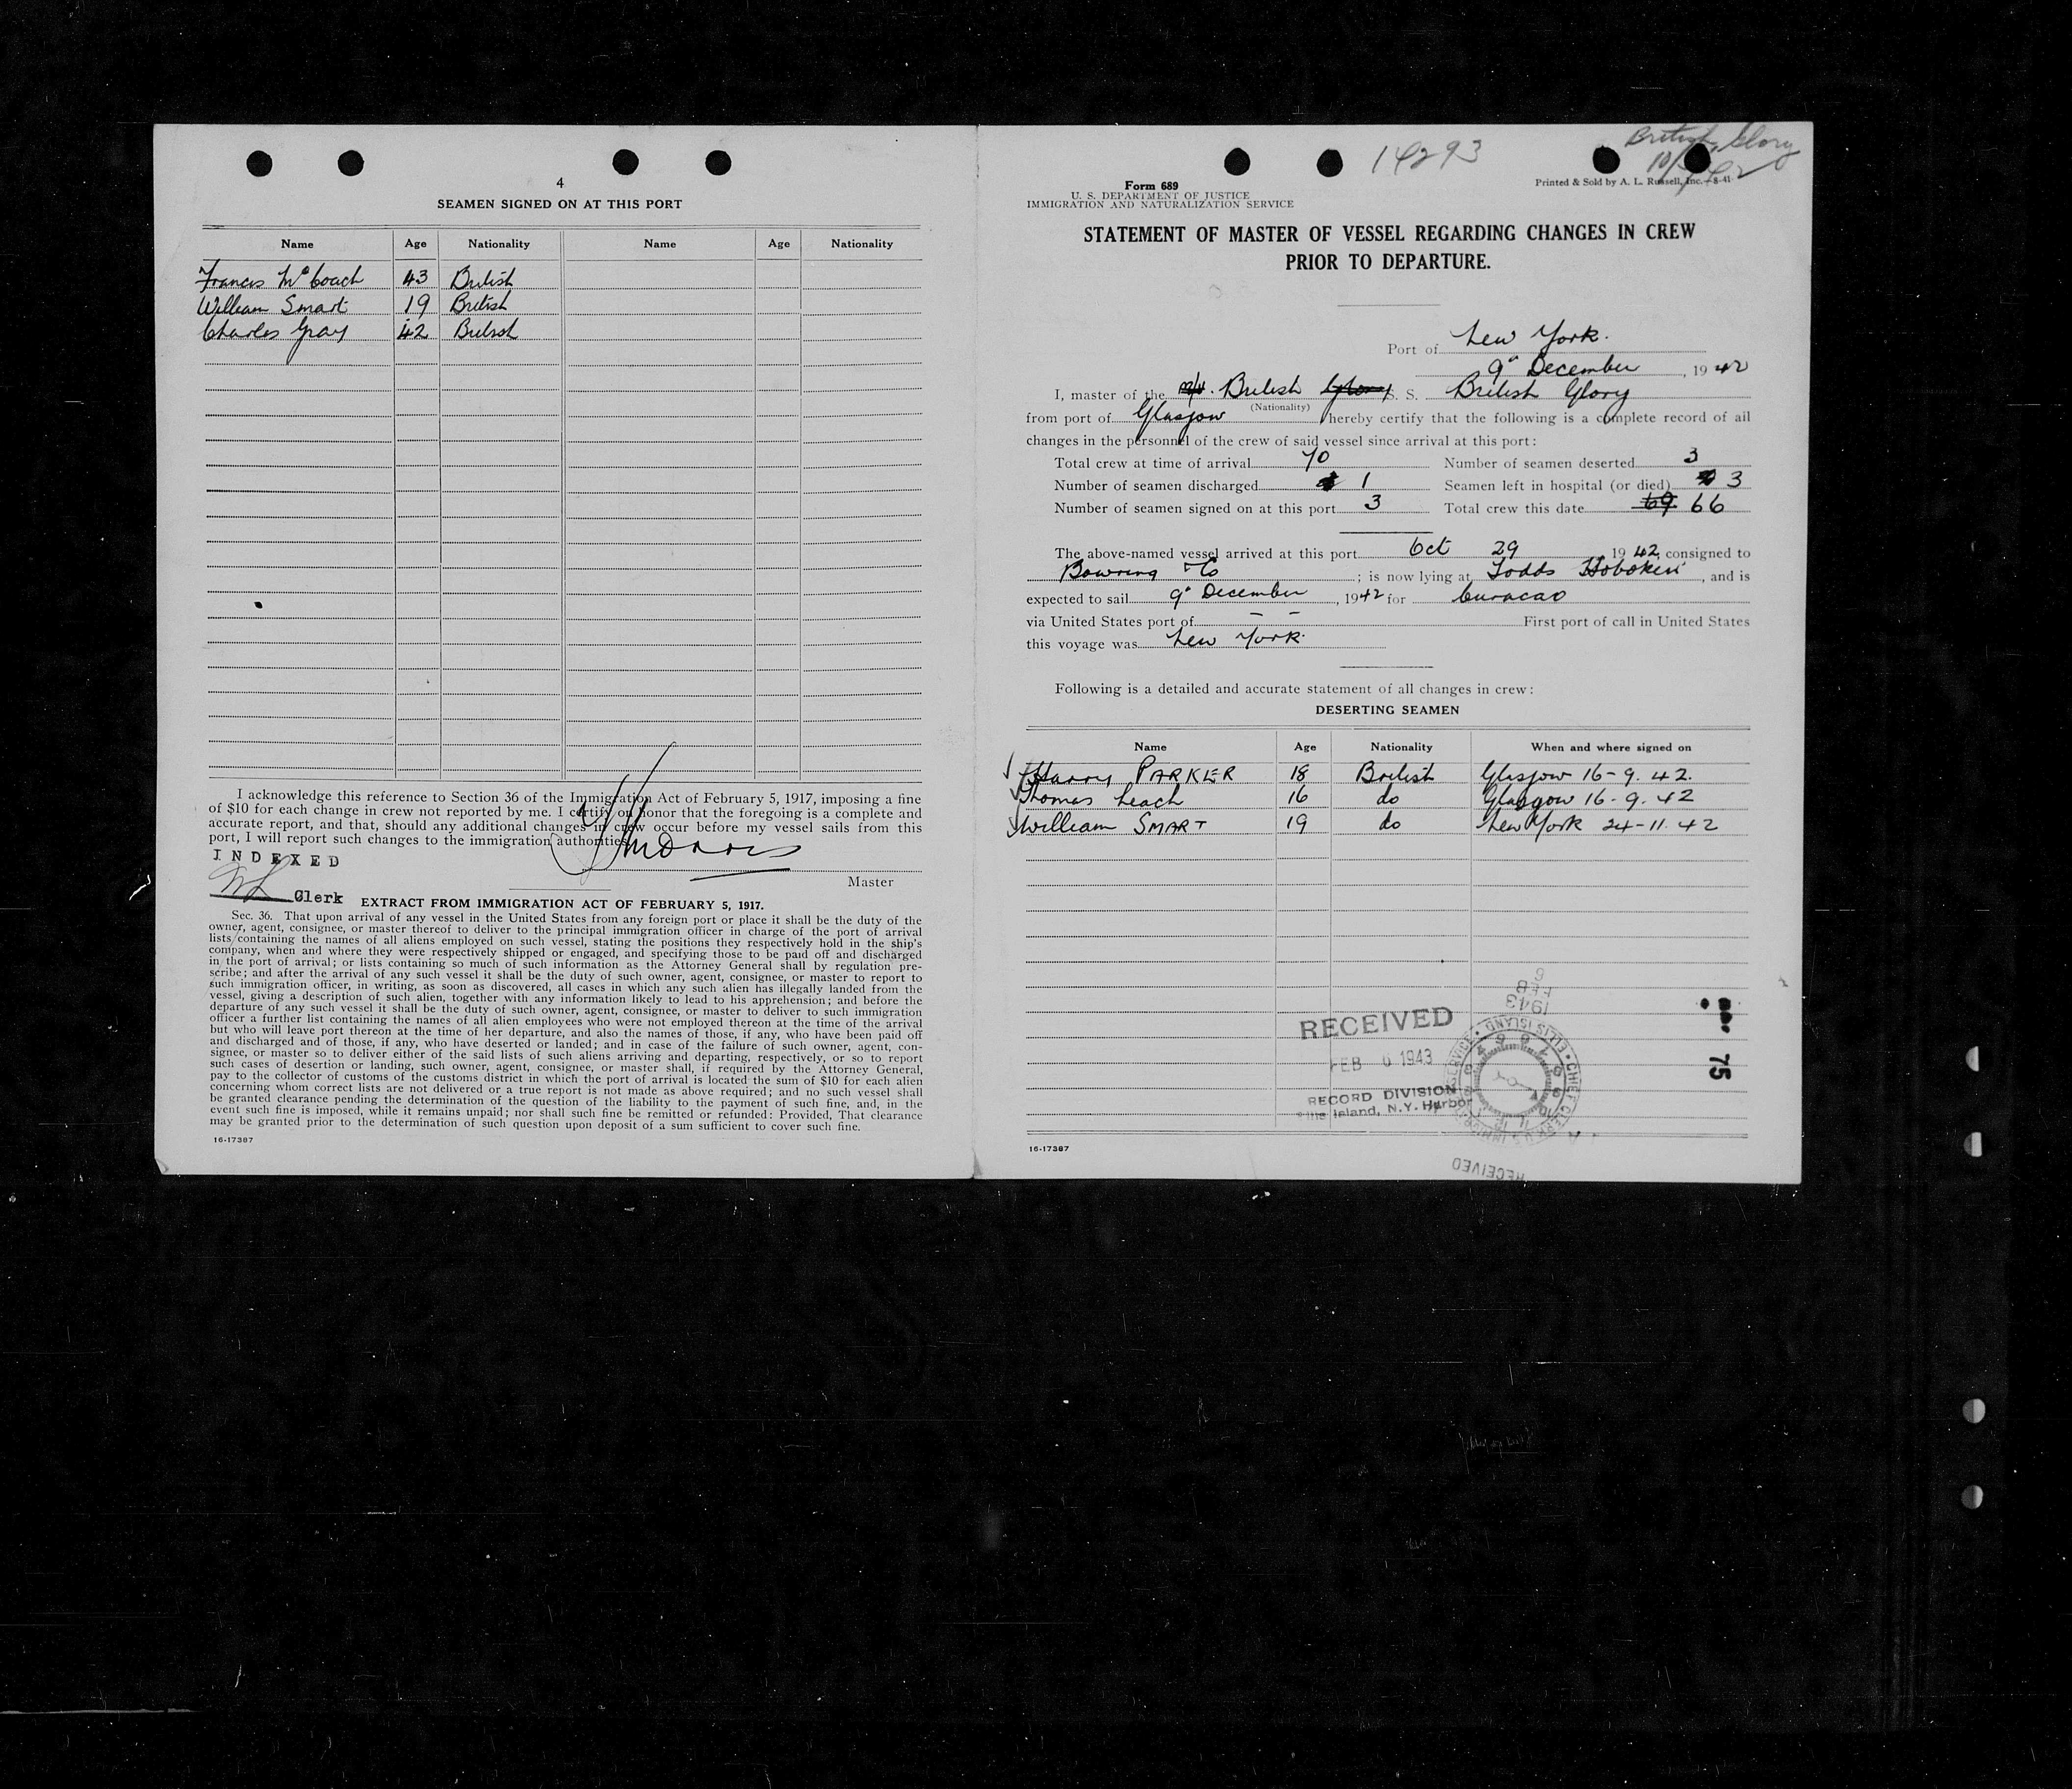 4
SEAMEN SIGNED ON AT THIS PORT
Name Age Nationality Name Age Nationality
Francis McCoach 43 British
William Smart 19 British
Charles Gray 42 British
I acknowledge this reference to Section 36 of the Immigration Act of February 5, 1917, imposing a fine
of $10 for each change in crew not reported by me. I certify on honor that the foregoing is a complete and
accurate report, and that, should any additional changes in crew occur before my vessel sails from this
port, I will report such changes to the immigration authorities.
INDEXED
Master
Clerk
EXTRACT FROM IMMIGRATION ACT OF FEBRUARY 5, 1917.
Sec. 36. That upon arrival of any vessel in the United States from any foreign port or place it shall be the duty of the
owner, agent, consignee, or master thereof to deliver to the principal immigration officer in charge of the port of arrival
lists containing the names of all aliens employed on such vessel, stating the positions they respectively hold in the ship's
company, when and where they were respectively shipped or engaged, and specifying those to be paid off and discharged
in the port of arrival; or lists containing so much of such information as the Attorney General shall by regulation pre-
scribe; and after the arrival of any such vessel it shall be the duty of such owner, agent, consignee, or master to report to
such immigration officer, in writing, as soon as discovered, all cases in which any such alien has illegally landed from the
vessel, giving a description of such alien, together with any information likely to lead to his apprehension; and before the
departure of any such vessel it shall be the duty of such owner, agent, consignee, or master to deliver to such immigration
officer a further list containing the names of all alien employees who were not employed thereon at the time of the arrival
but who will leave port thereon at the time of her departure, and also the names of those, if any, who have been paid off
and discharged and of those, if any, who have deserted or landed; and in case of the failure of such owner, agent, con-
signee, or master so to deliver either of the said lists of such aliens arriving and departing, respectively, or so to report
such cases of desertion or landing, such owner, agent, consignee, or master shall, if required by the Attorney General,
pay to the collector of customs of the customs district in which the port of arrival is located the sum of $10 for each alien
concerning whom correct lists are not delivered or a true report is not made as above required; and no such vessel shall
be granted clearance pending the determination of the question of the liability to the payment of such fine, and, in the
event such fine is imposed, while it remains unpaid; nor shall such fine be remitted or refunded: Provided, That clearance
may be granted prior to the determination of such question upon deposit of a sum sufficient to cover such fine.
16-17387
14293
British Glory
Form 689
U. S. DEPARTMENT OF JUSTICE
IMMIGRATION AND NATURALIZATION SERVICE
Printed & Sold by A. L. Russell, Inc.—8-41
STATEMENT OF MASTER OF VESSEL REGARDING CHANGES IN CREW
PRIOR TO DEPARTURE.
Port of New York.
9" December, 1942
I, master of the British Glory S. S. British Glory
(Nationality)
from port of Glasgow hereby certify that the following is a complete record of all
changes in the personnel of the crew of said vessel since arrival at this port:
Total crew at time of arrival 70 Number of seamen deserted 3
Number of seamen discharged 1 Seamen left in hospital (or died) 3
Number of seamen signed on at this port 3 Total crew this date 69 66
The above-named vessel arrived at this port Oct 29 1942, consigned to
Bowring & Co; is now lying at Todds Hoboken, and is
expected to sail 9" December, 1942 for Curacao
via United States port of — — First port of call in United States
this voyage was New York.
Following is a detailed and accurate statement of all changes in crew:
DESERTING SEAMEN
Name Age Nationality When and where signed on
Harry PARKER 18 British Glasgow 16-9.42.
Thomas Leach 16 do Glasgow 16-9.42
William SMART 19 do New York 24-11.42
RECEIVED
FEB 6 1943
RECORD DIVISION
Ellis Island, N.Y. Harbor
1943
FEB
6
ELLIS ISLAND
RECEIVED
75
16-17387